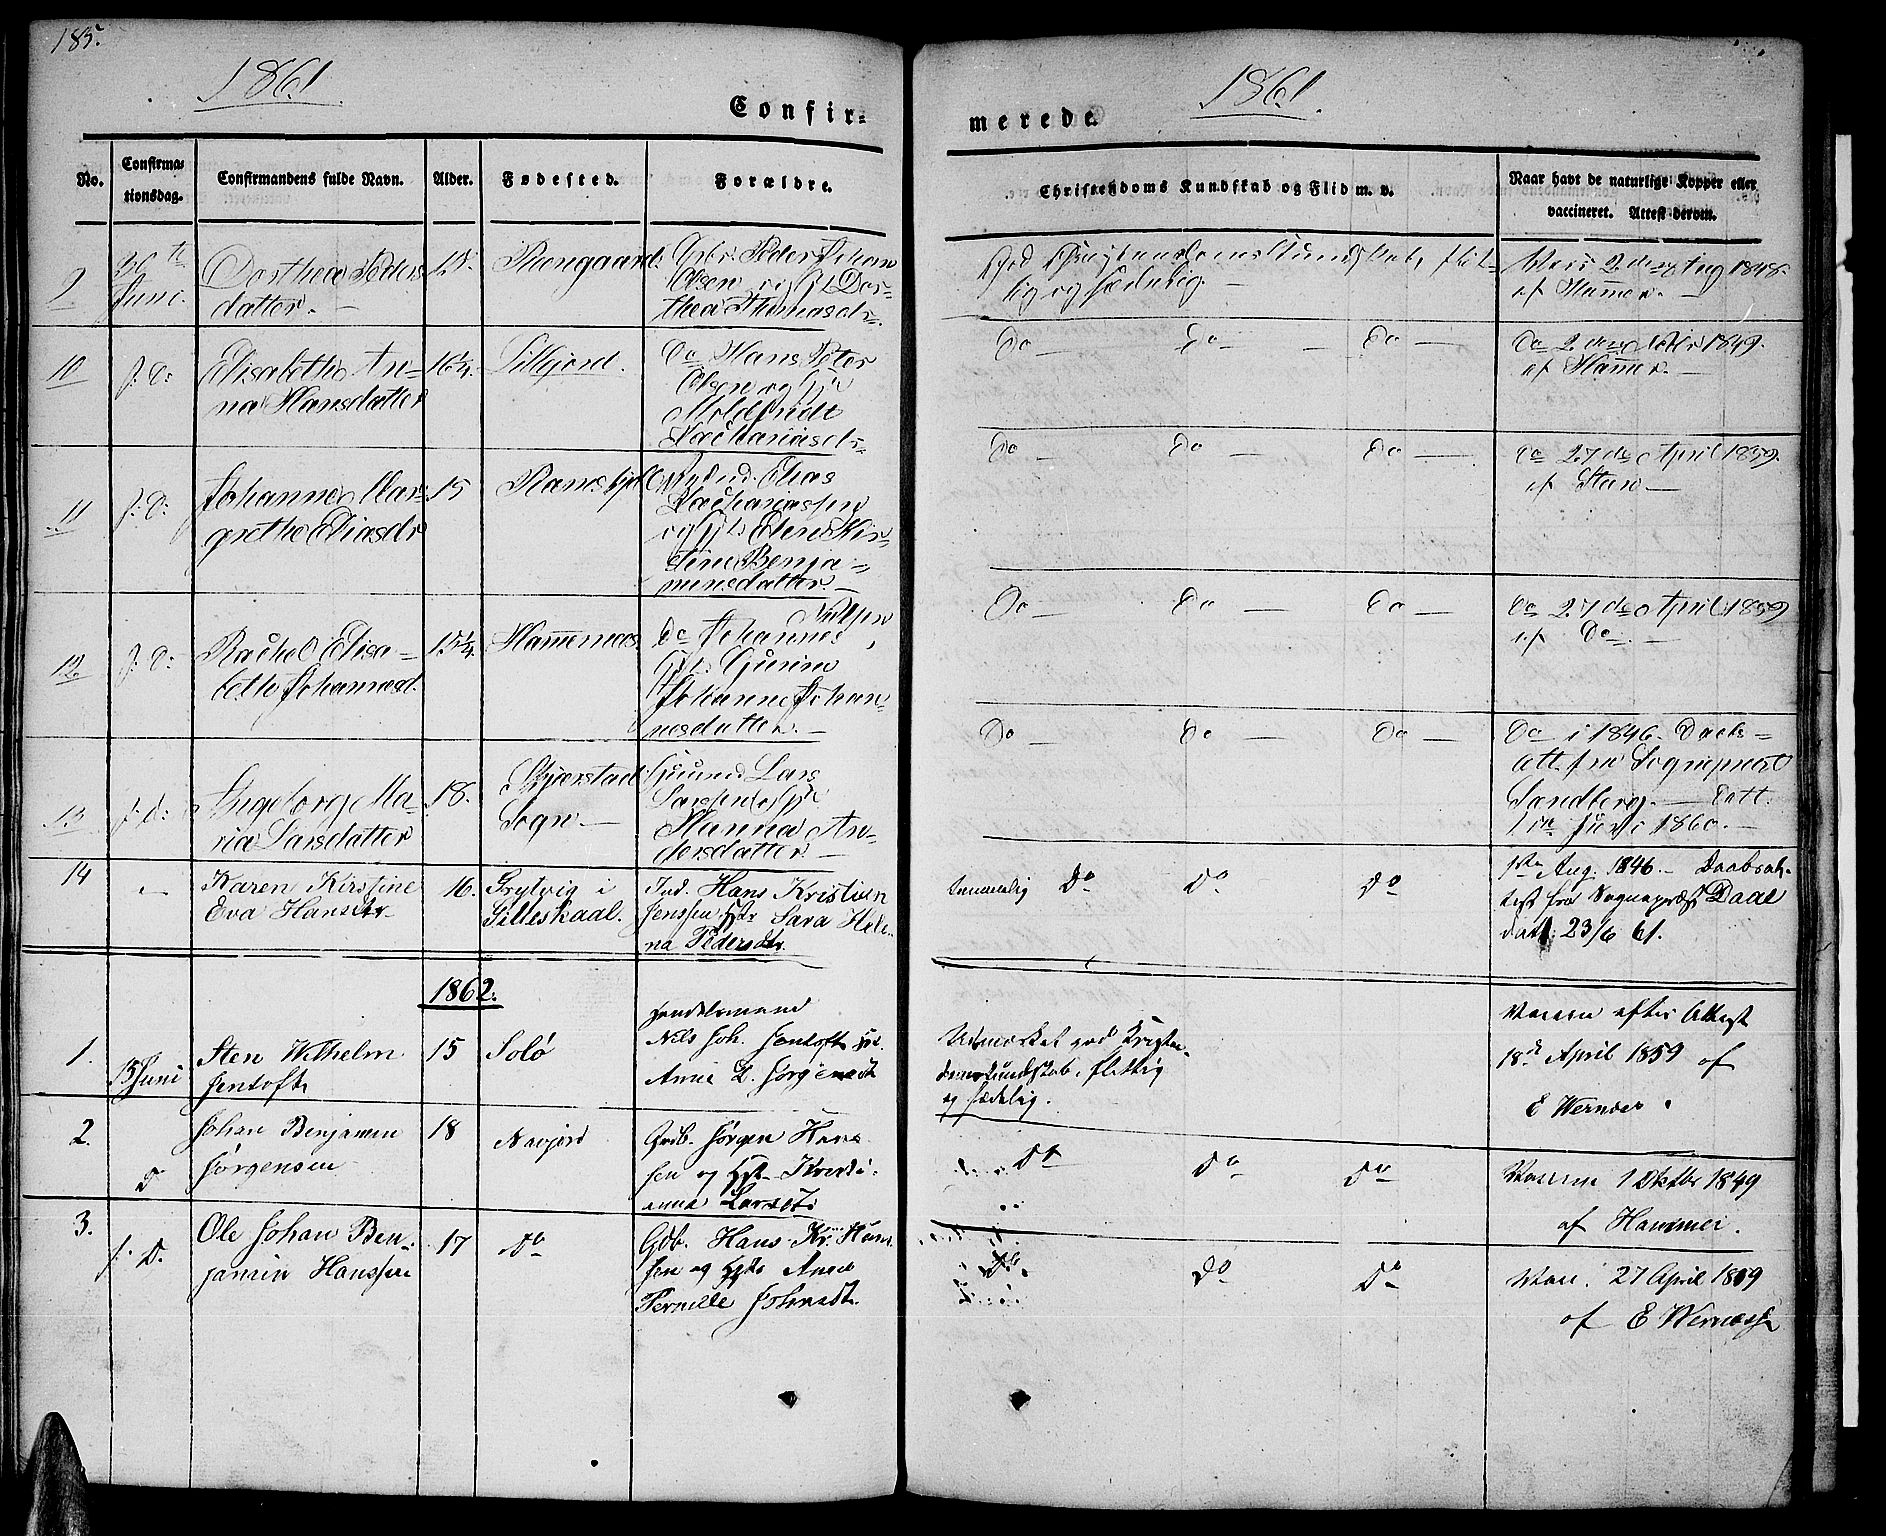 185.
1861
1861.
Confir-
merede.
No.
Confirma-
tionsdag.
Confirmandens fulde Navn.
Alder.
Fødested.
Forældre.
Christendoms Kundskab og Flid m. v.
Naar havt de naturlige Kopper eller
vaccineret. Attest derom.
9
30te
Juni.
Dorthea Peders
datter.
15.
Gbr. Peder Johan
Olsen og H. Dor-
thea Thomasdr.
God Christendomskundskab, flit-
tig og sædelig.
Vacc. 2den Aug 1848.
af Hammer.
10
f. D:
Elisabeth An-
na Hansdatter
16 1/4.
Lillejord.
Do Hans Peter
Olsen og H.
Zachariasdr.
Do — Do — Do —
Do 2den 1849.
af Hammer.
11
f. D:
Johanne Mar-
grethe Eliasdr
15
Elias
Zachariassen
og H. Elen Kir-
stine Benja-
minsdatter.
Do — Do — Do —
Do 27de April 1859.
af
12.
f. D:
Rachel Elisa-
beth Johannesd.
15 1/4.
Hammernæs
Nielsen
Do Johannes
Johanne Johan-
nesdatter.
Do — Do — Do —
Do 27de April 1859
af Do.
13
f. D:
Ingeborg Ma-
ria Larsdatter
18.
Skjerstad
Sogn.
Lars
Larssen og H.
Hanna An-
dersdatter.
Do — Do — Do —
Do i 1846. Daabs-
att. fra Sognepræst
Sandberg. — Datt.
Juni 1860.
14
Karen Kirstine
Eva Hansdtr
16.
Grytvig i
Gilleskaal.
Ind. Hans Kristian
Jenssen Hstr Sara Hele-
na Pedersdtr.
temmelig Do Do Do
1ste Aug. 1846 — Daabsat-
test fra Sognepræst Daae
dat. 23/6 61.
1862.
1.
15 Juni
Sten Wilhelm
Jentoft
15
Solø
Handelsmand
Nils Joh. Jentoft
Anne D. Jørgensdt
Udmærket god Kristen-
domskundskab, flittig
og sædelig.
Vaccin efter Attest
18de April 1859 af
E Wernder.
2.
D
Johan Benjamin
Jørgensen
18
Navjord
Gdb. Jørgen Han-
sen og Hst. Kristi-
anna Larsdt.
Do Do Do
Vaccin 1 Oktbr 1849
af Hammer.
3.
f. D.
Ole Johan Ben-
jamin Hanssen
17
Do
Gdb. Hans Kr. Han-
sen og Hst. Anne
Pernille Johnsdt.
Do Do Do
Vacc. 27 April 1859
af E